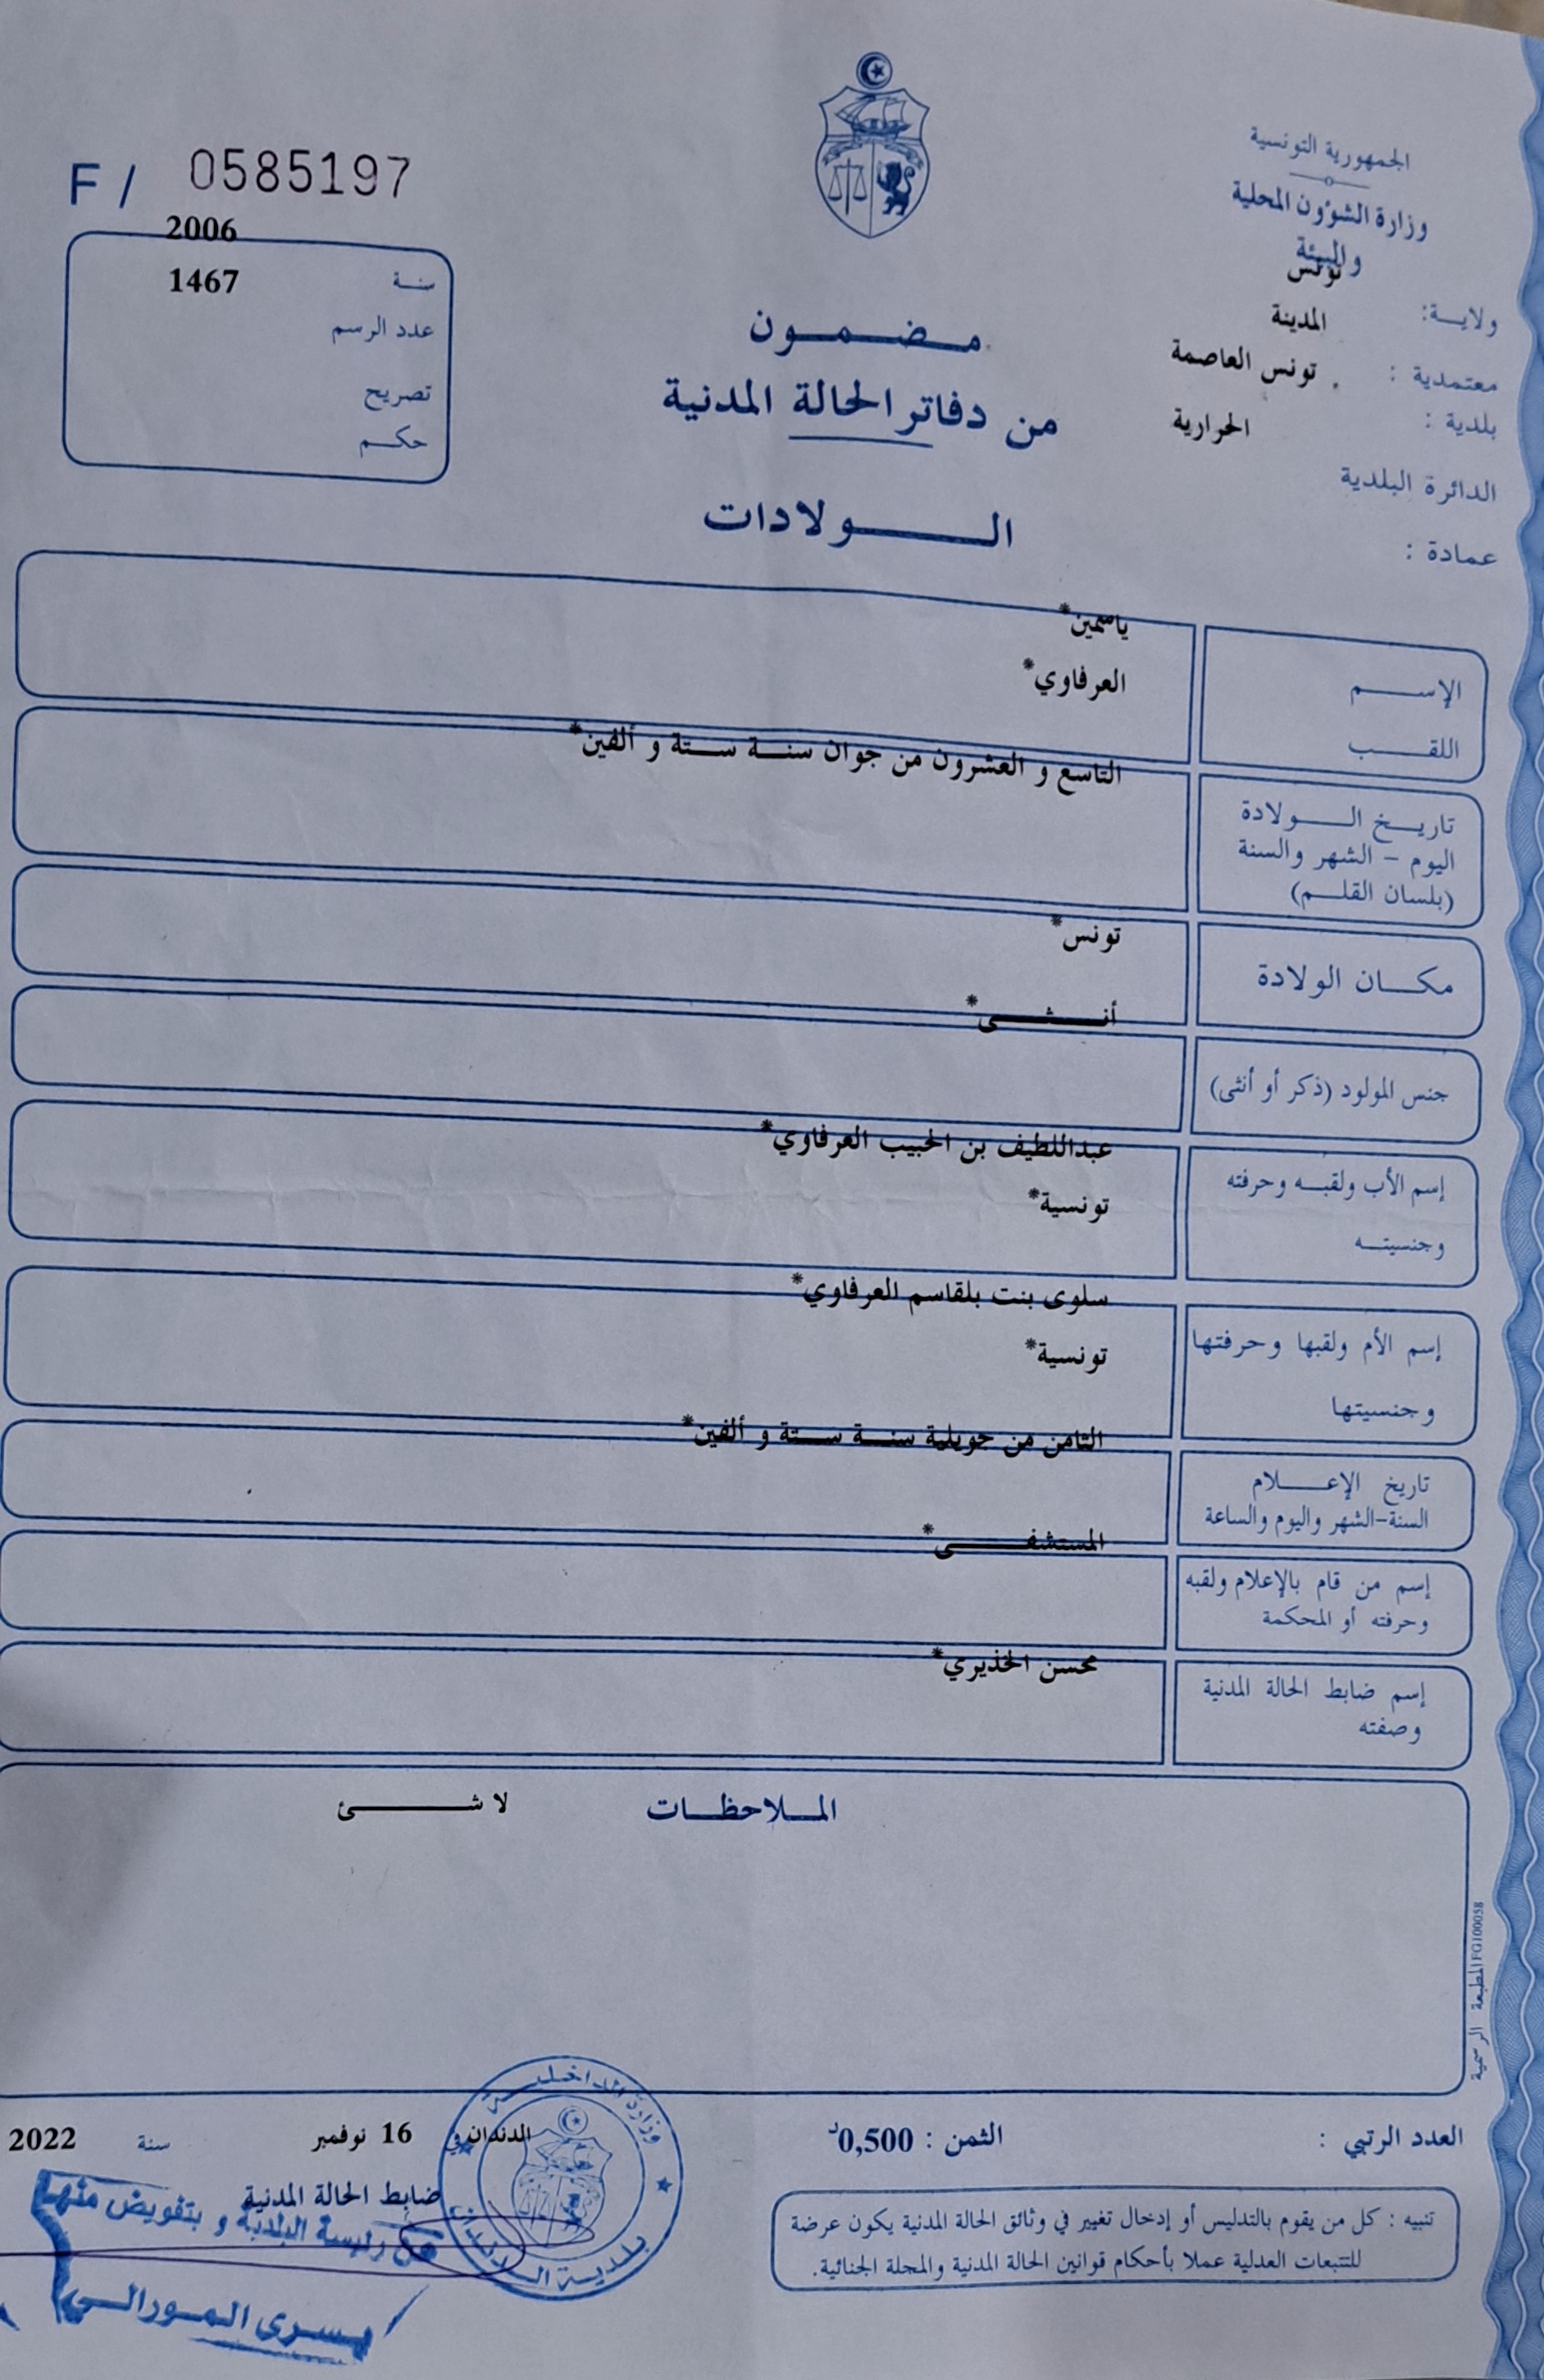 الجمهورية التونسية
وزارة الشؤون المحلية
والبيئة
ولايـــة: تونس
معتمدية : المدينة
بلدية : تونس العاصمة
الدائرة البلدية الحرارية
عمادة :
F / 0585197
سنـــة 2006
عدد الرسم 1467
تصريح
حكـــم
مـــضـــمـــون
من دفاتر الحالة المدنية
الـــــولادات
الإســـــم ياسمين*
اللقـــــب العرفاوي*
تاريـــخ الـــــولادة
اليوم - الشهر والسنة
(بلسان القلـــم)
التاسع و العشرون من جوان سنـــة ستـــة و ألفين*
مكـــان الولادة تونس*
جنس المولود (ذكر أو أنثى) أنـــثـــى*
إسم الأب ولقبـــه وحرفته عبداللطيف بن الحبيب العرفاوي*
وجنسيتـــه تونسية*
إسم الأم ولقبها وحرفتها سلوى بنت بلقاسم العرفاوي*
وجنسيتها تونسية*
تاريخ الإعـــــلام
السنة-الشهر واليوم والساعة
الثامن من جويلية سنـــة ستـــة و ألفين*
إسم من قام بالإعلام ولقبه
وحرفته أو المحكمة
المستشفـــــى*
إسم ضابط الحالة المدنية
وصفته
محسن الخذيري*
المـــلاحظـــات لا شـــــئ
المطبعة الرسمية FG100058
العدد الرتبي :
الثمن : 0,500د
الدندان في 16 نوفمبر سنة 2022
ضابط الحالة المدنية
عن رئيسة البلدية و بتفويض منها
يسرى المورالي
وزارة الداخليـــة
بلديـــة الـــدندان
تنبيه : كل من يقوم بالتدليس أو إدخال تغيير في وثائق الحالة المدنية يكون عرضة
للتتبعات العدلية عملا بأحكام قوانين الحالة المدنية والمجلة الجنائية.